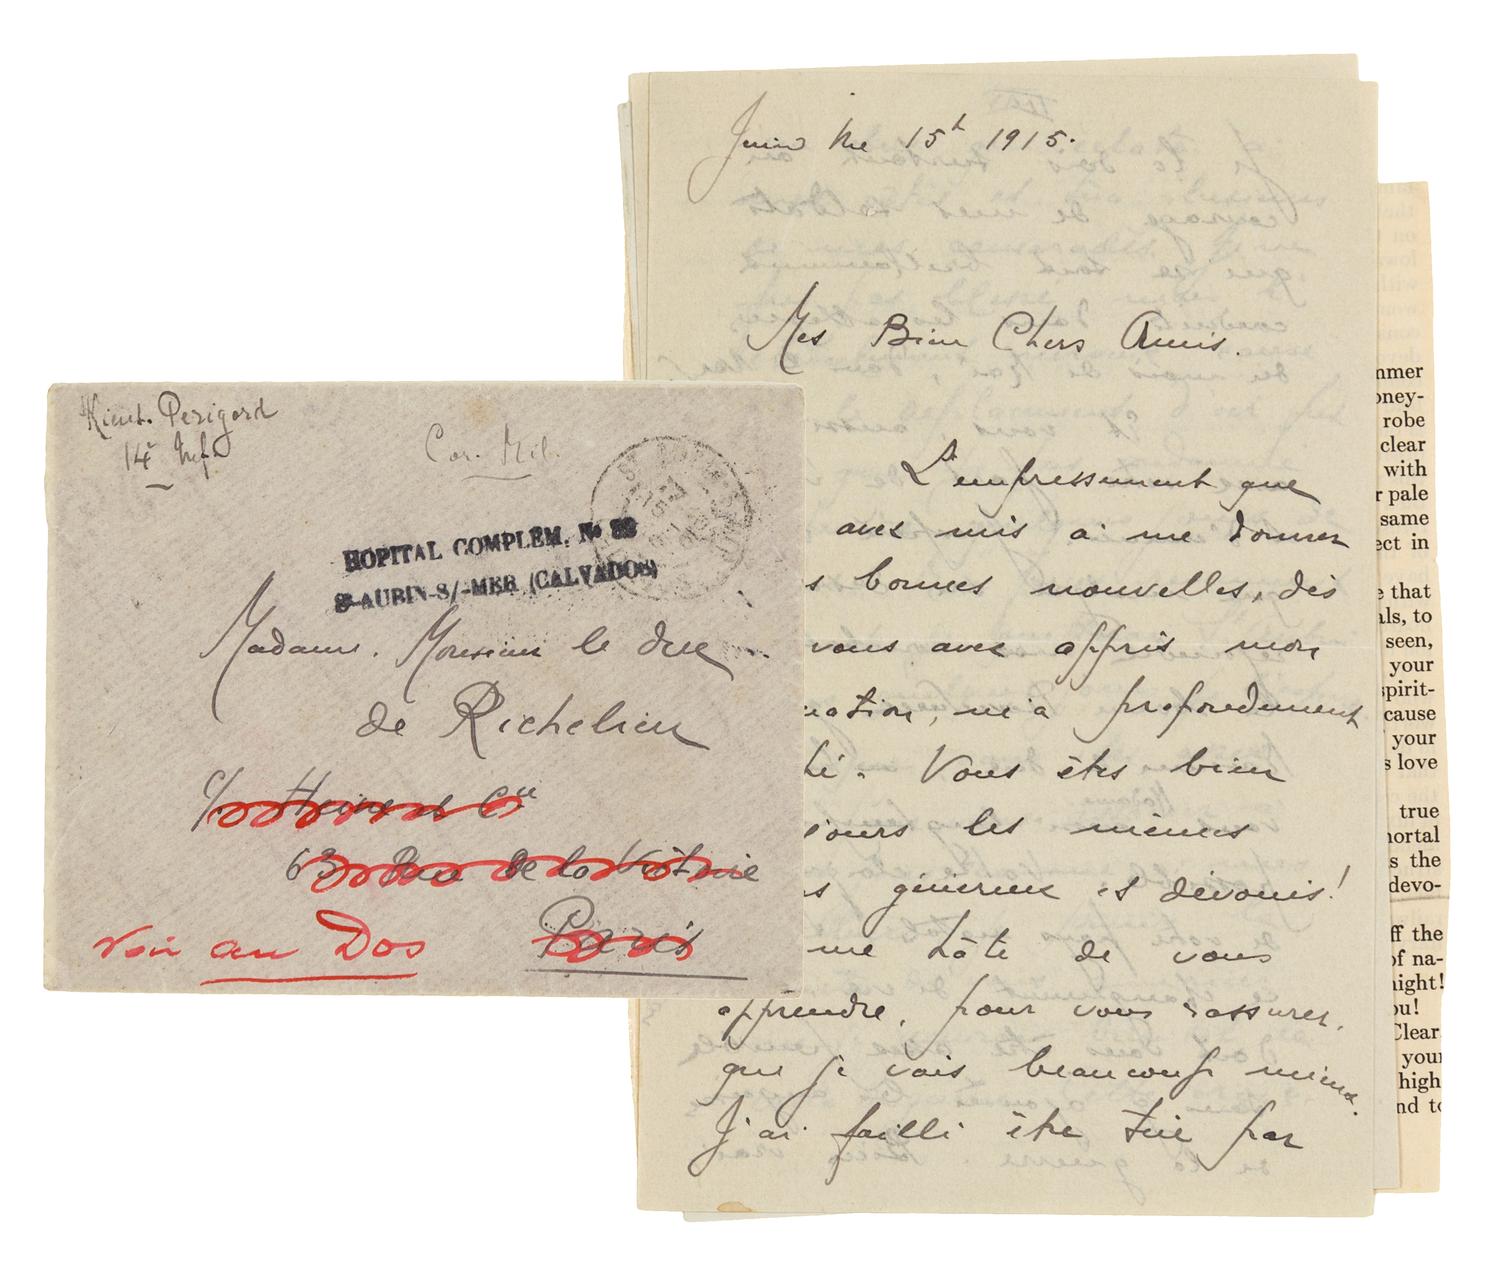 Lieut. Perigord
14e Inf
Cor. Mil.
HOPITAL COMPLEM. No
St-AUBIN-S/-MER (CALVADOS)
Madame. Monsieur le duc
de Richelieu
c/ Heine et Cie
63 Rue de la Victoire
Paris
Voir au Dos
June the 15h 1915.
Mes Bien Chers Amis.
L'empressement que
avez mis à me donner
s bonnes nouvelles, dès
vous avez appris mon
uation, m'a profondement
hé. Vous êtes bien
jours les mêmes
s généreux et dévoués!
me hâte de vous
apprendre, pour vous rassurer,
que je vais beaucoup mieux.
J'ai failli être tué par
mmer
oney-
robe
clear
with
r pale
same
ect in
e that
als, to
seen,
your
spirit-
cause
your
s love
true
mortal
s the
devo-
ff the
of na-
night!
ou!
Clear
your
high
nd to